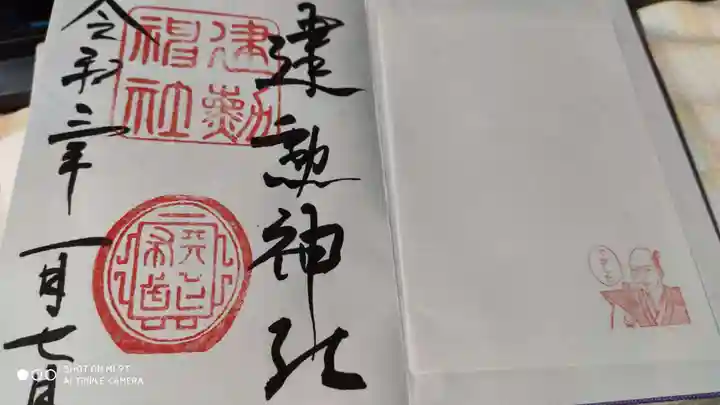 建勲神社
令和三年一月七日
建勲
神社
SHOT ON MI 9T
AI TRIPLE CAMERA